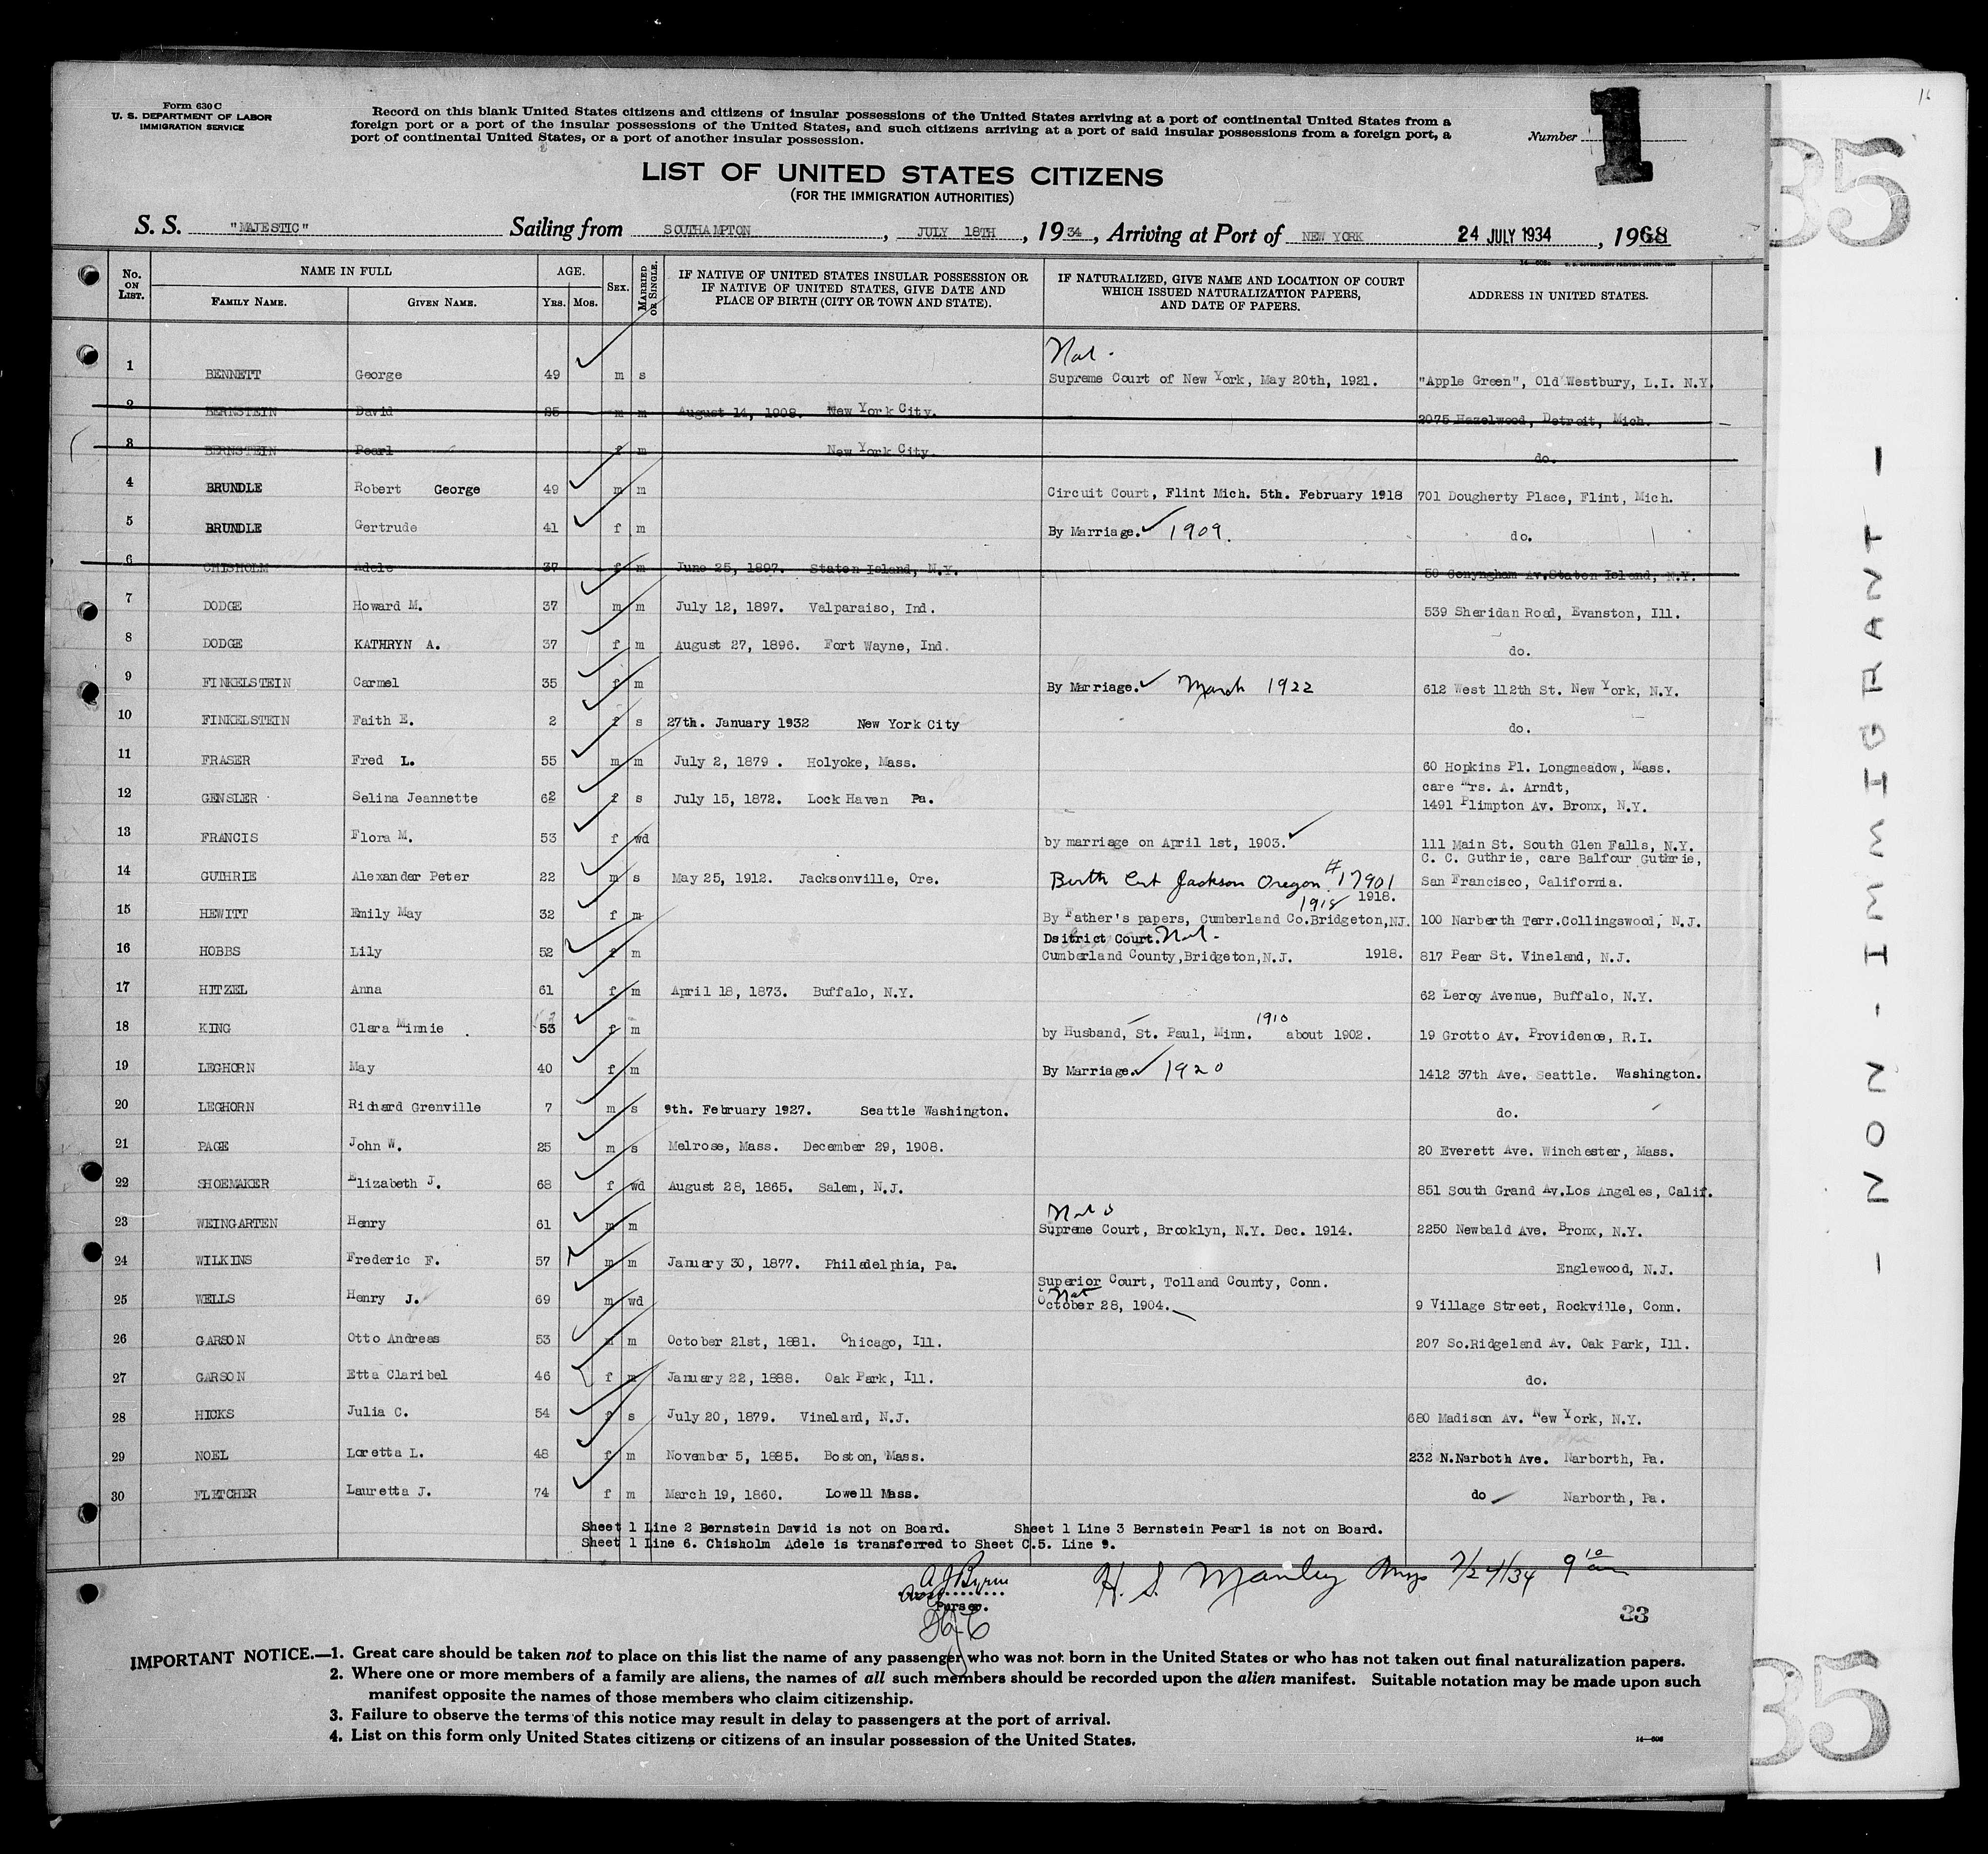 Form 630 C
U. S. DEPARTMENT OF LABOR
IMMIGRATION SERVICE
Record on this blank United States citizens and citizens of insular possessions of the United States arriving at a port of continental United States from a
foreign port or a port of the insular possessions of the United States, and such citizens arriving at a port of said insular possessions from a foreign port, a
port of continental United States, or a port of another insular possession.
Number 1
LIST OF UNITED STATES CITIZENS
(FOR THE IMMIGRATION AUTHORITIES)
S. S. "MAJESTIC" Sailing from SOUTHAMPTON, JULY 18TH, 1934, Arriving at Port of NEW YORK 24 JULY 1934, 19
No. ON LIST. NAME IN FULL FAMILY NAME. GIVEN NAME. AGE. YRS. MOS. SEX. MARRIED OR SINGLE. IF NATIVE OF UNITED STATES INSULAR POSSESSION OR IF NATIVE OF UNITED STATES, GIVE DATE AND PLACE OF BIRTH (CITY OR TOWN AND STATE). IF NATURALIZED, GIVE NAME AND LOCATION OF COURT WHICH ISSUED NATURALIZATION PAPERS, AND DATE OF PAPERS. ADDRESS IN UNITED STATES.
Nat.
1 BENNETT George 49 m s Supreme Court of New York, May 20th, 1921. "Apple Green", Old Westbury, L.I. N.Y.
2 BERNSTEIN David 25 m m August 14, 1908. New York City. 2075 Hazelwood, Detroit, Mich.
3 BERNSTEIN Pearl f m New York City. do.
4 BRUNDLE Robert George 49 m m Circuit Court, Flint Mich. 5th. February 1918 701 Dougherty Place, Flint, Mich.
5 BRUNDLE Gertrude 41 f m By Marriage. 1909. do.
6 CHISHOLM Adele 37 f m June 25, 1897. Staten Island, N.Y. 50 Conyngham Av.Staten Island, N.Y.
7 DODGE Howard M. 37 m m July 12, 1897. Valparaiso, Ind. 539 Sheridan Road, Evanston, Ill.
8 DODGE KATHRYN A. 37 f m August 27, 1896. Fort Wayne, Ind. do.
9 FINKELSTEIN Carmel 35 f m By Marriage. March 1922 612 West 112th St. New York, N.Y.
10 FINKELSTEIN Faith E. 2 f s 27th. January 1932 New York City do.
11 FRASER Fred L. 55 m m July 2, 1879 . Holyoke, Mass. 60 Hopkins Pl. Longmeadow, Mass.
care Mrs. A. Arndt,
12 GENSLER Selina Jeannette 62 f s July 15, 1872. Lock Haven Pa. 1491 Plimpton Av. Bronx, N.Y.
13 FRANCIS Flora M. 53 f wd by marriage on April 1st, 1903. 111 Main St. South Glen Falls, N.Y.
C. C. Guthrie, care Balfour Guthrie,
14 GUTHRIE Alexander Peter 22 m s May 25, 1912. Jacksonville, Ore. Birth Cert Jackson Oregon #17901 San Francisco, California.
1918 1918.
15 HEWITT Emily May 32 f m By Father's papers, Cumberland Co.Bridgeton,NJ. 100 Narberth Terr.Collingswood, N.J.
Dsitrict Court. Nat.
16 HOBBS Lily 52 f m Cumberland County,Bridgeton,N.J. 1918. 817 Pear St. Vineland, N.J.
17 HITZEL Anna 61 f m April 18, 1873. Buffalo, N.Y. 62 Leroy Avenue, Buffalo, N.Y.
1910
18 KING Clara Minnie . 53 f m by Husband, St. Paul, Minn. about 1902. 19 Grotto Av. Providence, R.I.
19 LEGHORN May 40 f m By Marriage. 1920 1412 37th Ave. Seattle. Washington.
20 LEGHORN Richard Grenville 7 m s 9th. February 1927. Seattle Washington. do.
21 PAGE John W. 25 m s Melrose, Mass. December 29, 1908. 20 Everett Ave. Winchester, Mass.
22 SHOEMAKER Elizabeth J. 68 f wd August 28, 1865. Salem, N.J. 851 South Grand Av.Los Angeles, Calif.
Nat
23 WEINGARTEN Henry 61 m m Supreme Court, Brooklyn, N.Y. Dec. 1914. 2250 Newbald Ave. Bronx, N.Y.
24 WILKINS Frederic F. 57 m m January 30, 1877. Philadelphia, Pa. Englewood, N.J.
Superior Court, Tolland County, Conn.
Nat
25 WELLS Henry J. 69 m wd October 28, 1904. 9 Village Street, Rockville, Conn.
26 GARSON Otto Andreas 53 m m October 21st, 1881. Chicago, Ill. 207 So.Ridgeland Av. Oak Park, Ill.
27 GARSON Etta Claribel 46 f m January 22, 1888. Oak Park, Ill. do.
28 HICKS Julia C. 54 f s July 20, 1879. Vineland, N.J. 680 Madison Av. New York, N.Y.
29 NOEL Loretta L. 48 f m November 5, 1885. Boston, Mass. 232 N.Narboth Ave. Narborth, Pa.
30 FLETCHER Lauretta J. 74 f m March 19, 1860. Lowell Mass. do Narborth, Pa.
Sheet 1 Line 2 Bernstein David is not on Board. Sheet 1 Line 3 Bernstein Pearl is not on Board.
Sheet 1 Line 6. Chisholm Adele is transferred to Sheet C.5. Line 9.
Purser.
H. S. Manley 7/24/34 9 10 am
33
IMPORTANT NOTICE.—1. Great care should be taken not to place on this list the name of any passenger who was not born in the United States or who has not taken out final naturalization papers.
2. Where one or more members of a family are aliens, the names of all such members should be recorded upon the alien manifest. Suitable notation may be made upon such
manifest opposite the names of those members who claim citizenship.
3. Failure to observe the terms of this notice may result in delay to passengers at the port of arrival.
4. List on this form only United States citizens or citizens of an insular possession of the United States.
14—608
16
35
- NON - IMMIGRANT -
35